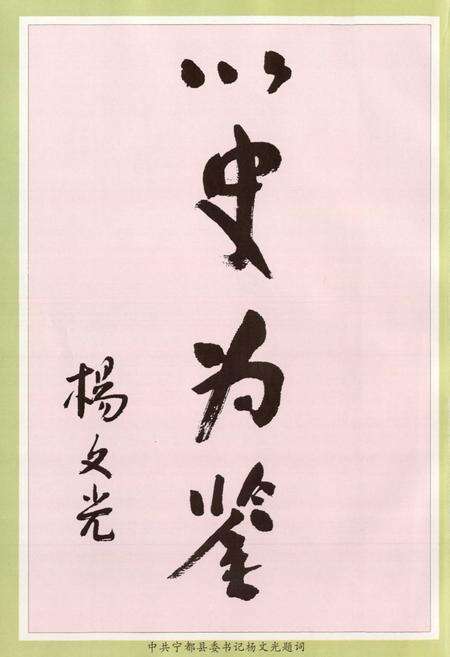 以史为鉴
楊文光
中共宁都县委书记杨文光题词